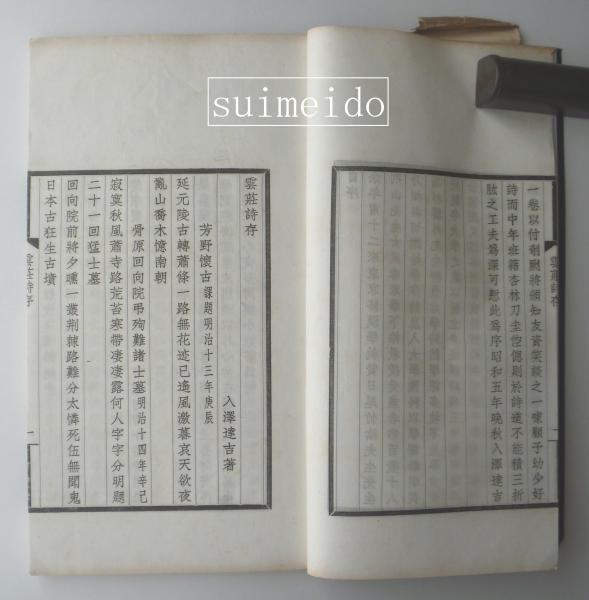 suimeido
一卷以付剞劂將頒知友資笑談之一噱顧予幼少好
詩而中年班籍杏林刀圭倥傯剧於詩道不能積三折
肱之工夫爲深可慙此爲序昭和五年晚秋入澤達吉
雲莊詩存
二
雲莊詩存
入澤達吉著
芳野懷古 課題明治十三年庚辰
延元陵古轉蕭條一路無花迹已遙風激暮哀天欲夜
亂山喬木憶南朝
骨原回向院弔殉難諸士墓 明治十四年辛己
寂寞秋風蕭寺路荒苔寒帶凄凄露何人字字分明題
二十一回猛士墓
回向院前將夕曛一叢荆棘路難分太憐死伍無聞鬼
日本古狂生古墳
雲莊詩存
一